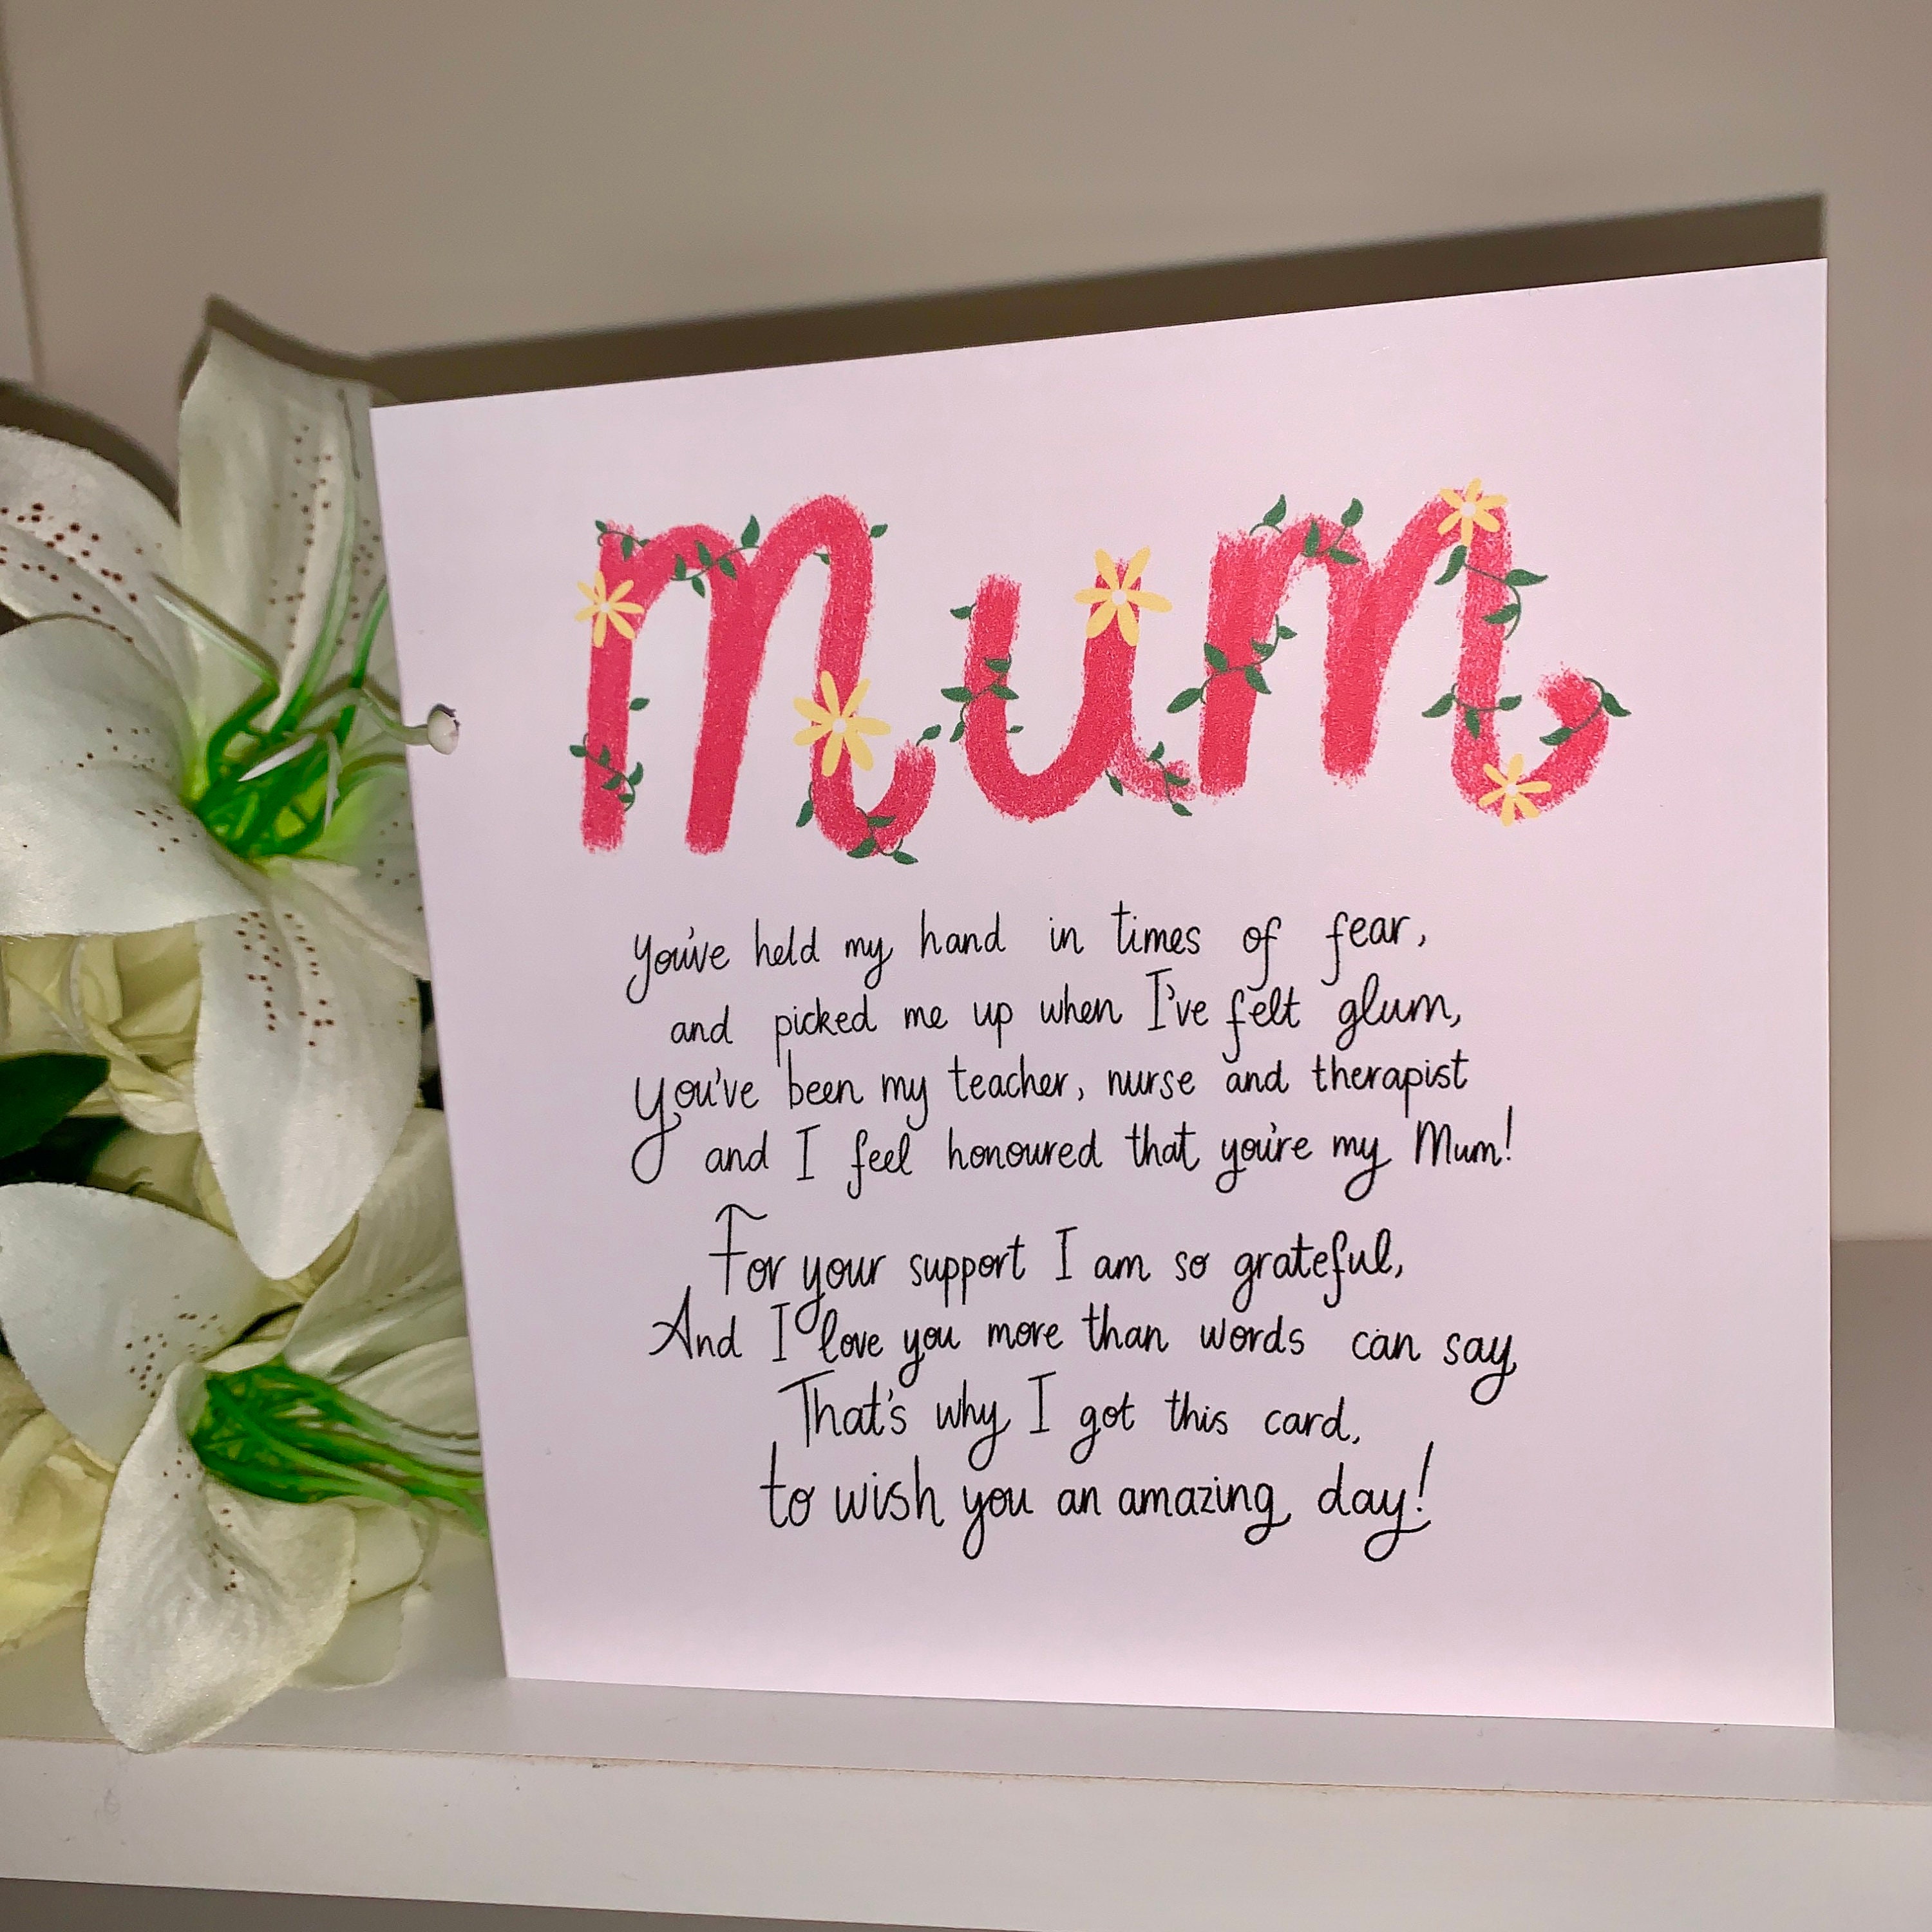 Mum
You've held my hand in times of fear,
and picked me up when I've felt glum,
you've been my teacher, nurse and therapist
and I feel honoured that you're my Mum!
For your support I am so grateful,
And I love you more than words can say
That's why I got this card,
to wish you an amazing day!